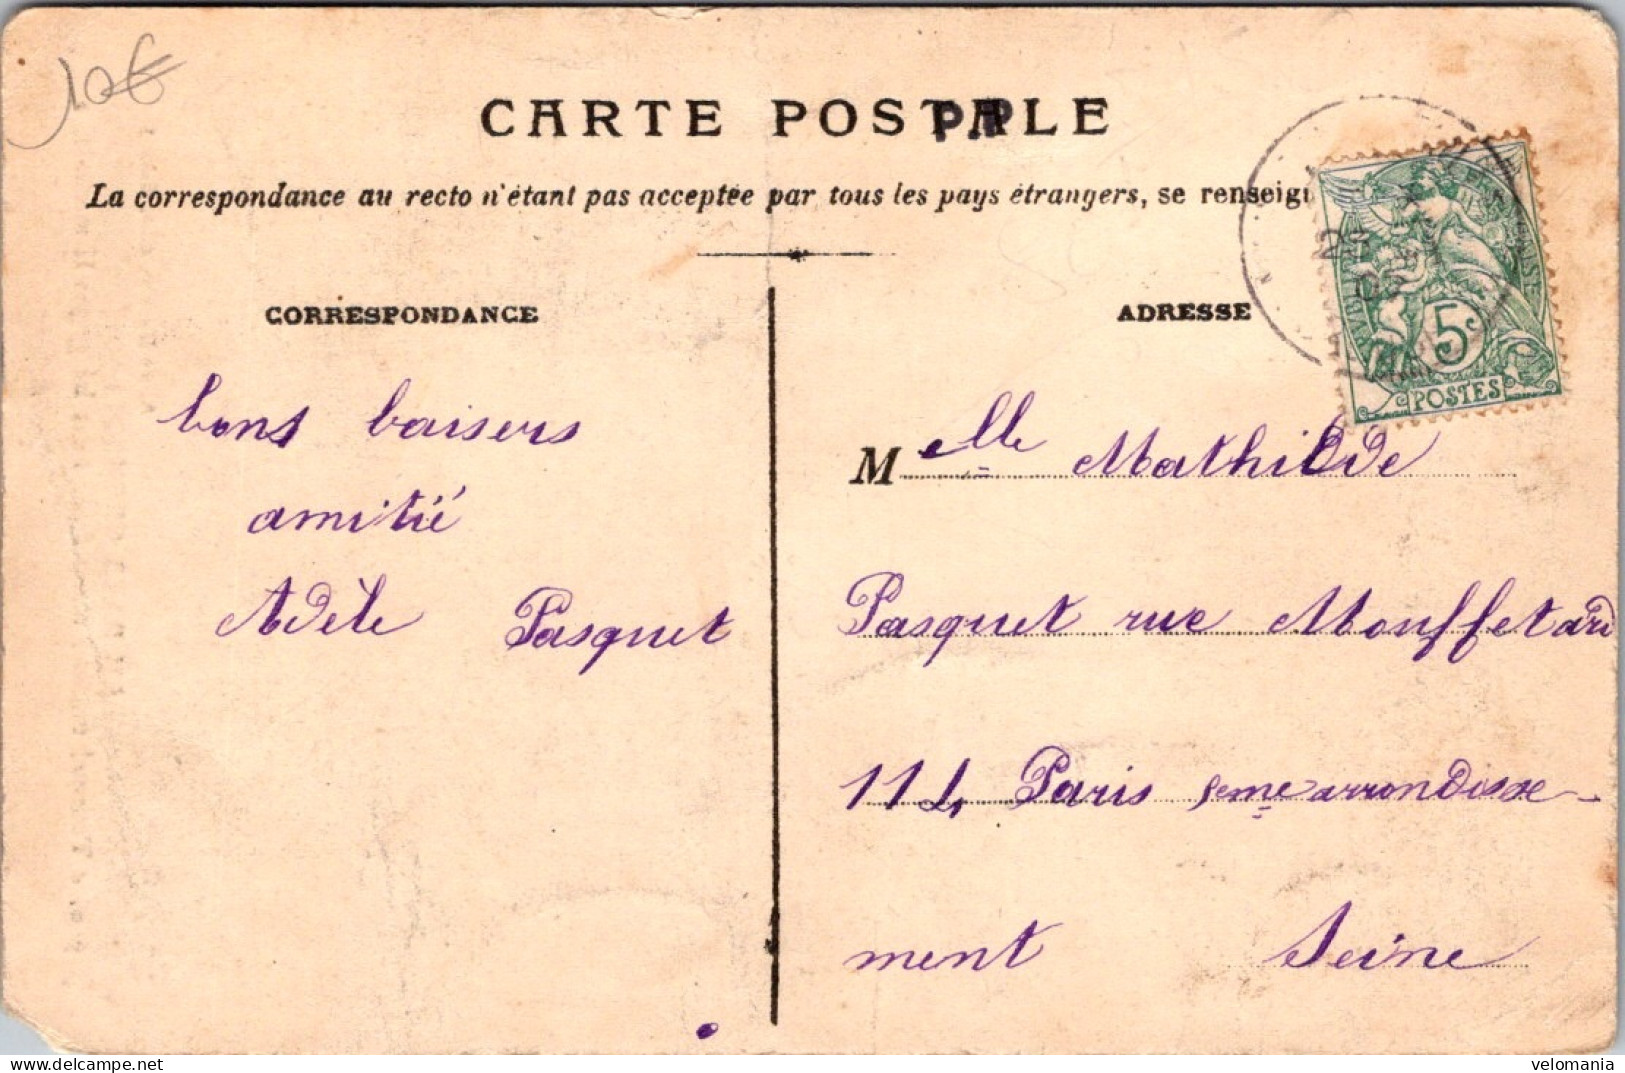 10€
CARTE POSTALE
P.P
La correspondance au recto n'étant pas acceptée par tous les pays étrangers, se renseign
CORRESPONDANCE
ADRESSE
5c
POSTES
bons baisers
amitié
Adèle Pasquet
Melle Mathilde
Pasquet rue Mouffetard
114 Paris 5eme arrondisse-
ment Seine
www.delcampe.net
velomania